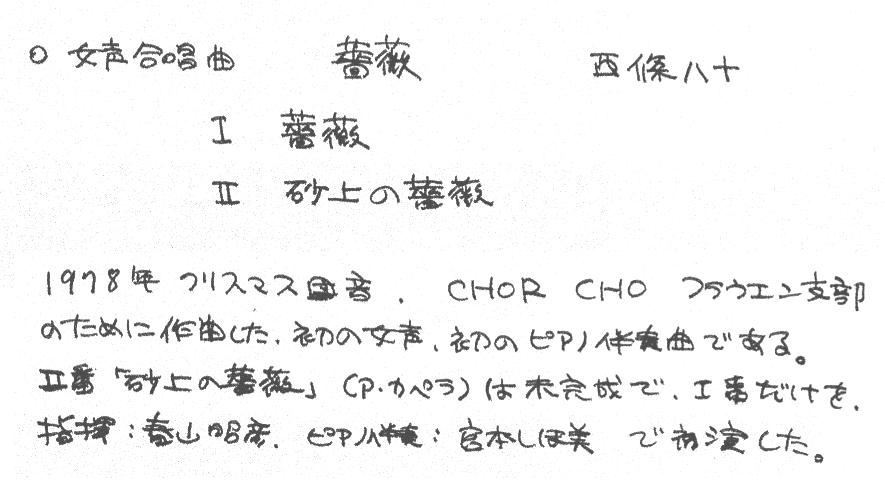 ○ 女声合唱曲 薔薇 西條八十
I 薔薇
II 砂上の薔薇
1978年 クリスマス 音、 CHOR CHO フラウエン支部
のために作曲した、初の女声、初のピアノ伴奏曲である。
II番「砂上の薔薇」(ア・カペラ)は未完成で、I番だけを、
指揮：春山昭彦、ピアノ伴奏：宮本しほ美 で初演した。